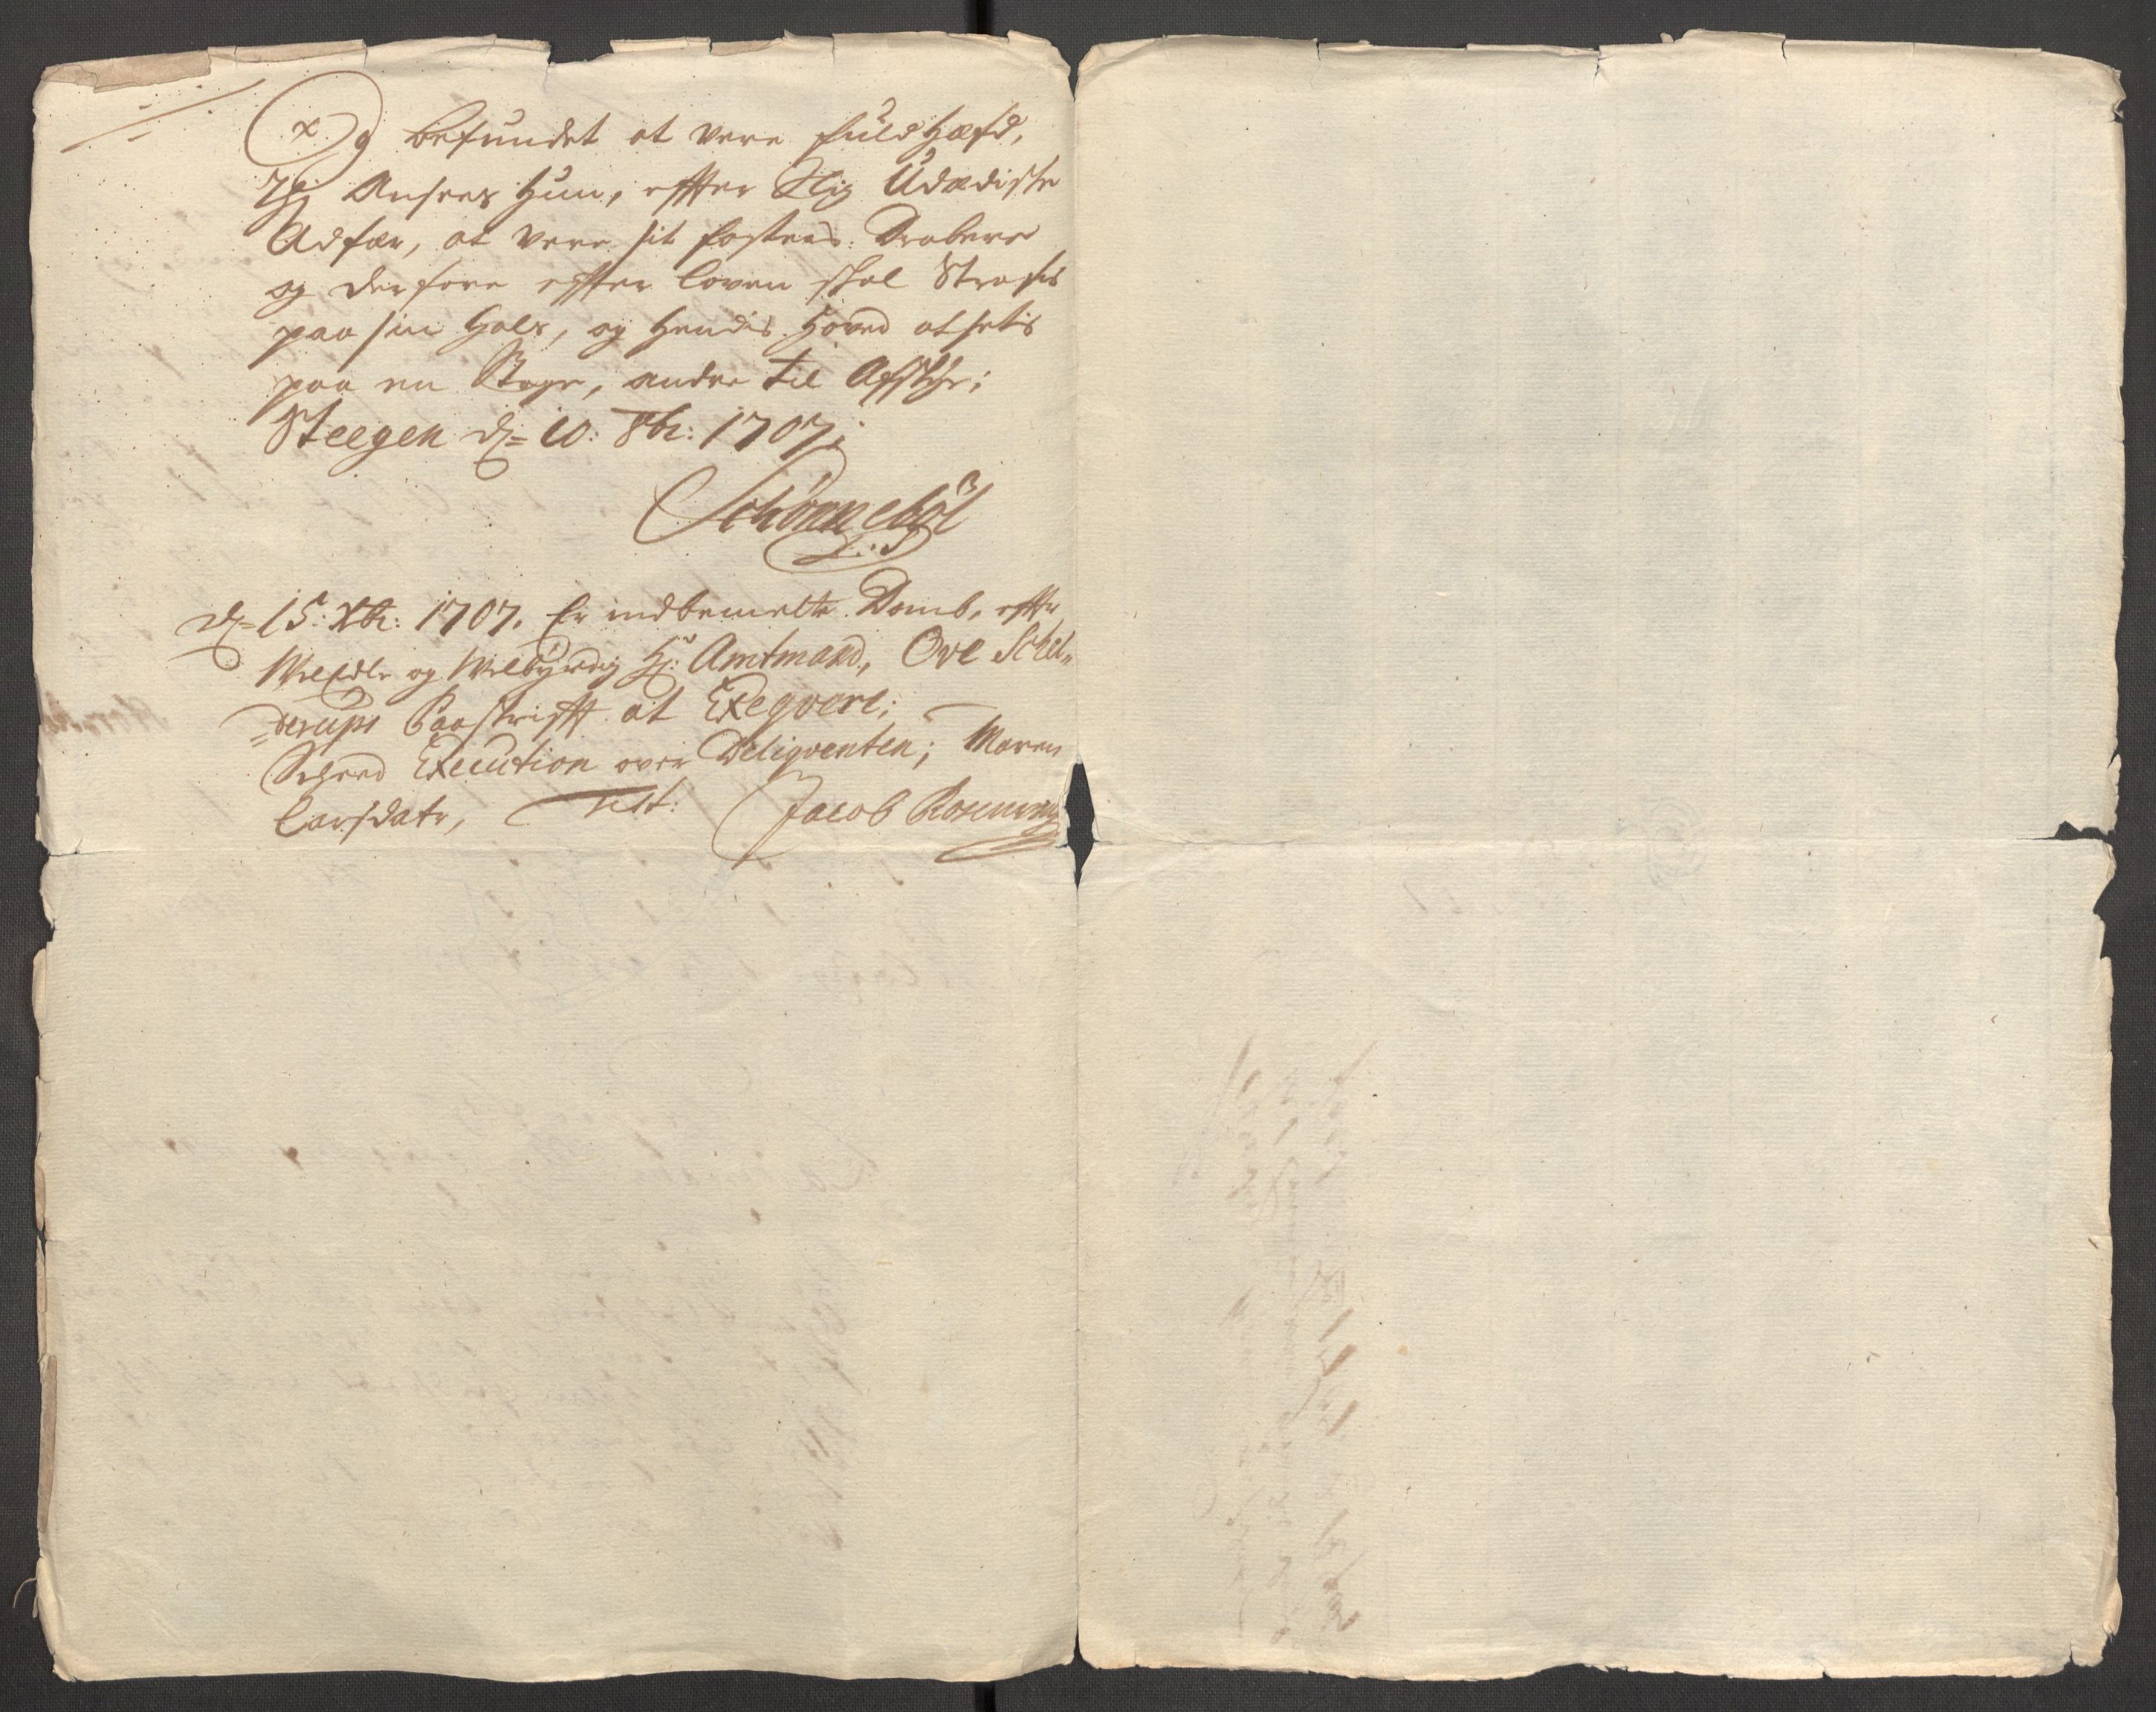 og befundet at vere fuldhæfd,
Thi Ansees Hun, effter Slig Udædiske
Adfær, at vere sit fosters Drabere
og derfore effter loven skal Strafis
paa sin Hals, og Hendis Hoved at setis
paa en Stage, andre til Afskye;
Steegen d= 10: 8br: 1707;
Schönnebøl
d= 15: Xbr: 1707. Er indbemelte Domb, effter
WelEdle og Welbyrdig Hr: Amtmand, Ove Schel„
=derups Paaskrifft at Exeqvere;
Execution over Deliqventen; Maren
Larsdatr, Test: Jacob Rosenving